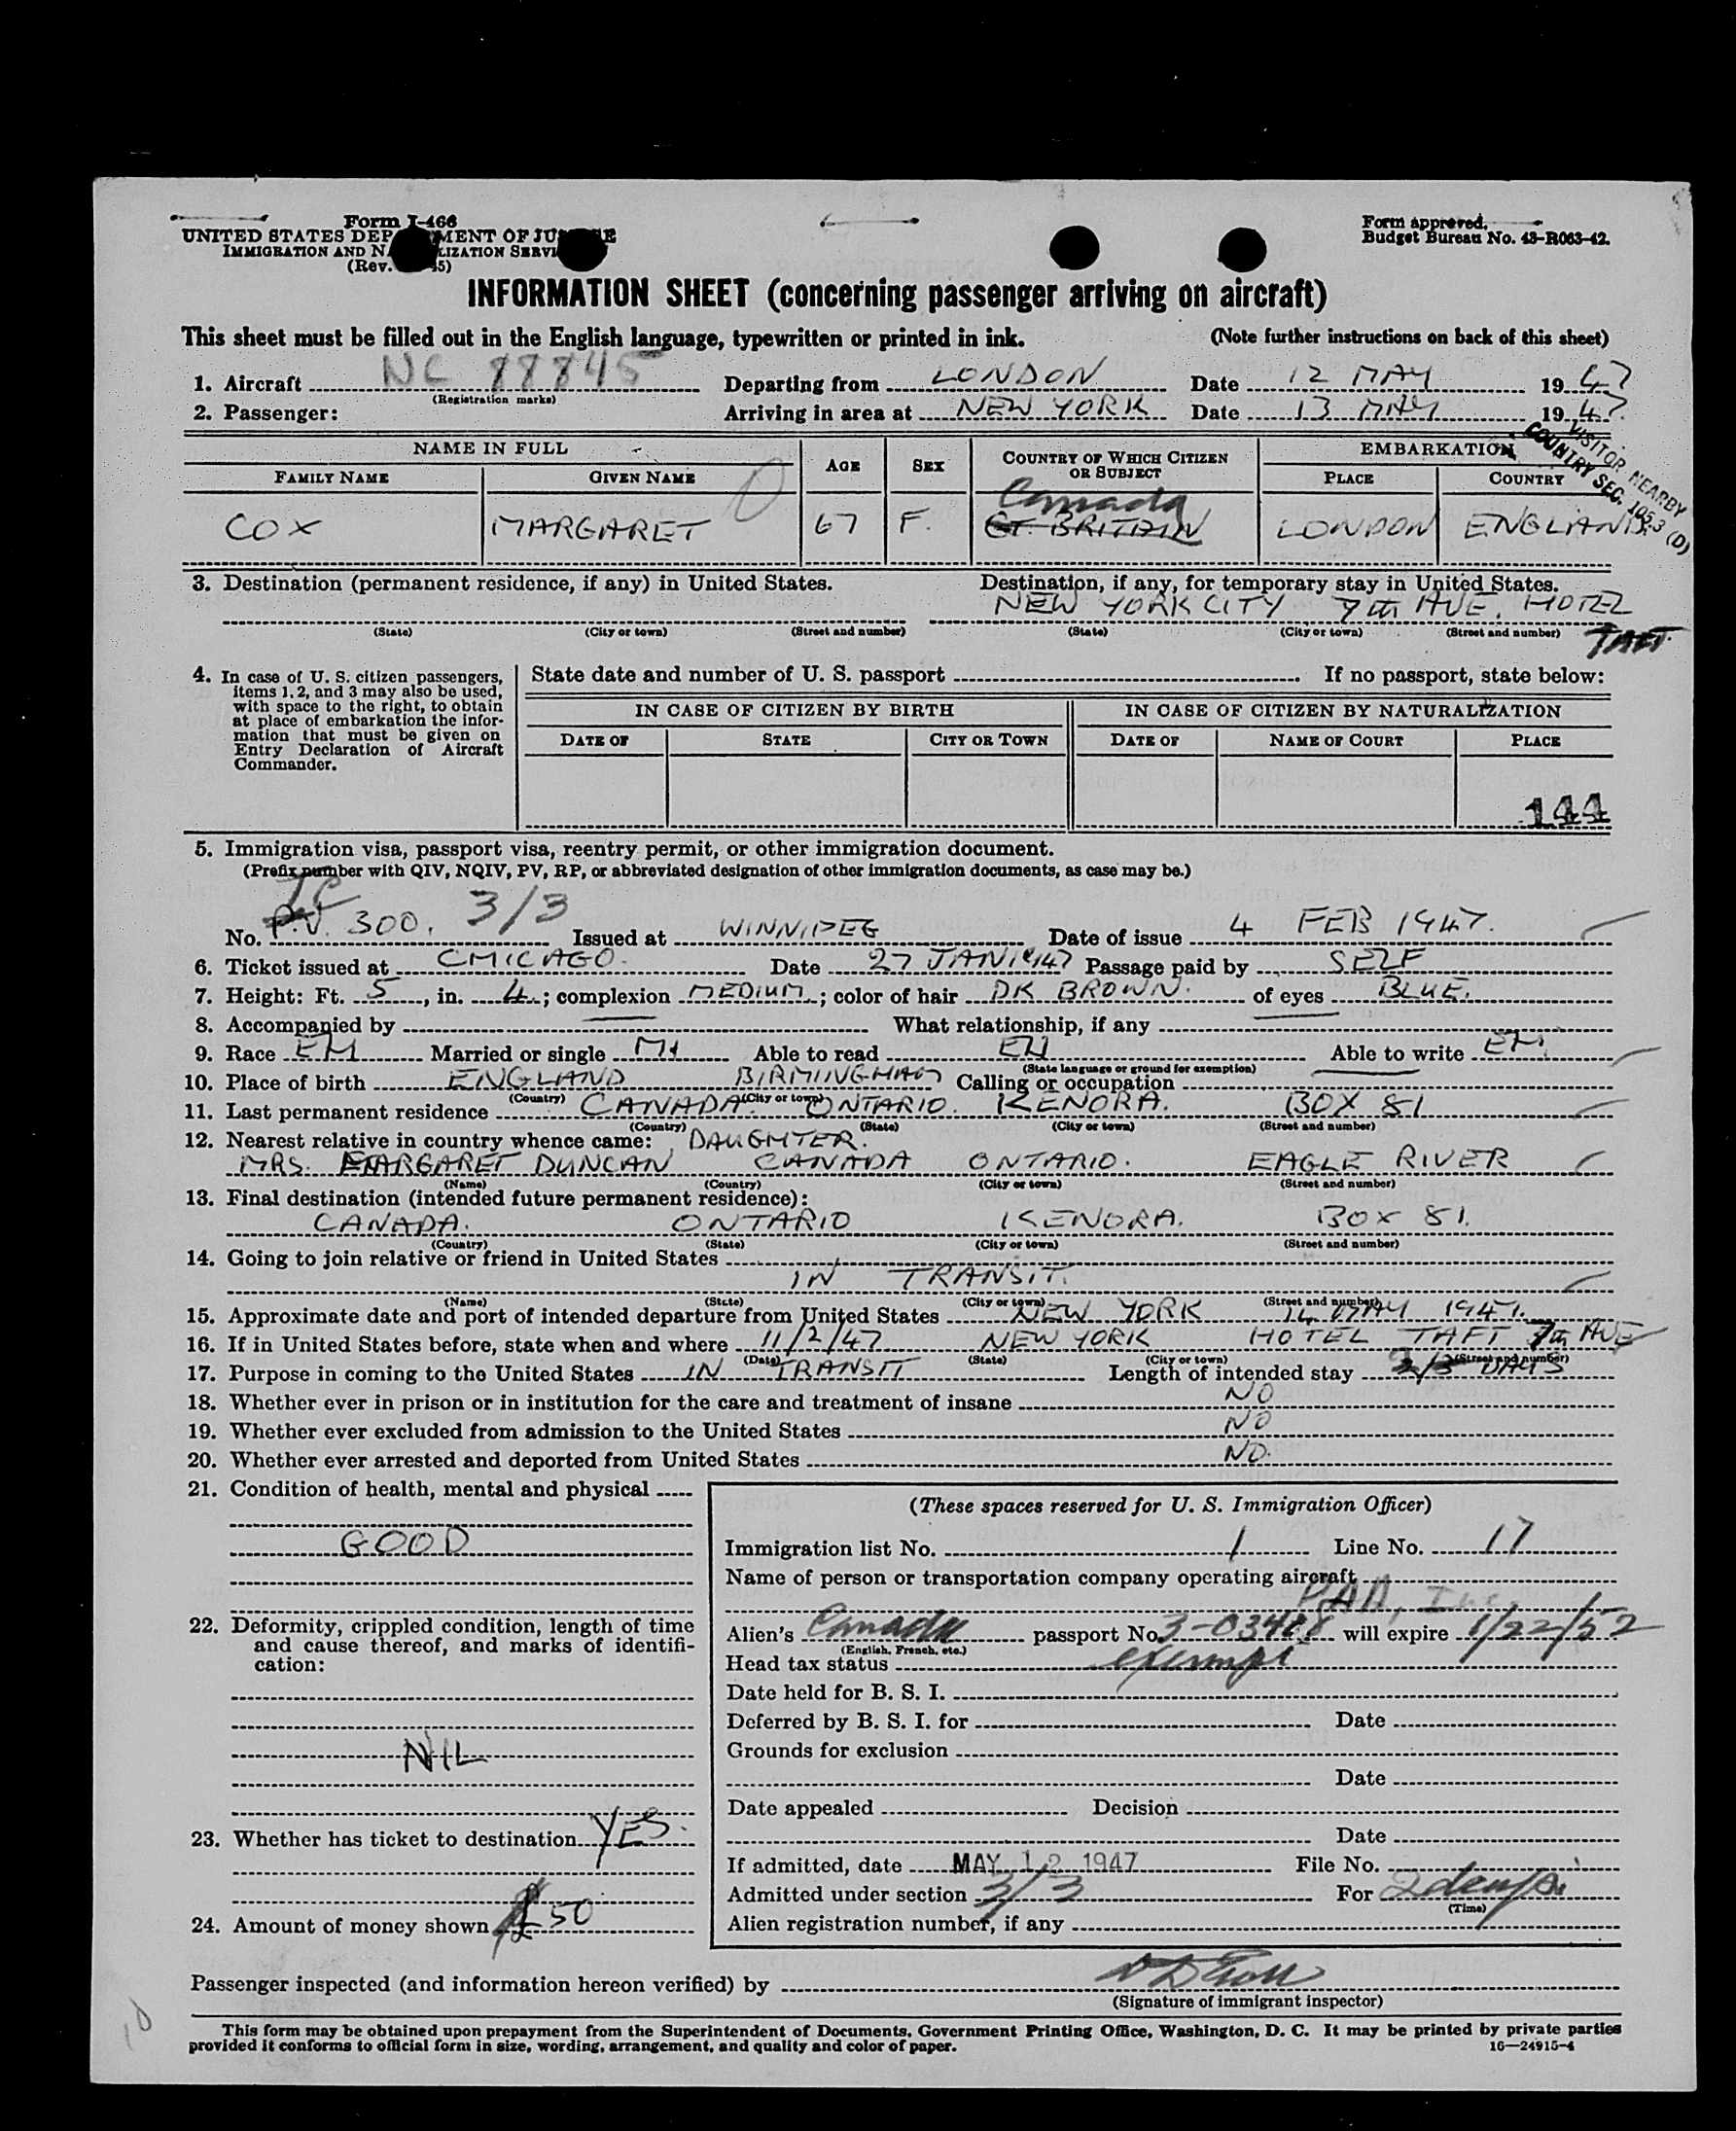 Form I-466
UNITED STATES DEP MENT OF JU E
IMMIGRATION AND NA LIZATION SERVI
(Rev. 45)
Form approved.
Budget Bureau No. 43-R063-42.
INFORMATION SHEET (concerning passenger arriving on aircraft)
This sheet must be filled out in the English language, typewritten or printed in ink. (Note further instructions on back of this sheet)
1. Aircraft NC 88845 Departing from LONDON Date 12 MAY 1947
(Registration marks)
2. Passenger: Arriving in area at NEW YORK Date 13 MAY 1947.
VISITOR NEARBY
COUNTRY SEC. 105.3 (D)
NAME IN FULL AGE SEX COUNTRY OF WHICH CITIZEN OR SUBJECT EMBARKATION
FAMILY NAME GIVEN NAME PLACE COUNTRY
Canada
COX MARGARET 67 F. GT. BRITAIN LONDON ENGLAND
3. Destination (permanent residence, if any) in United States. Destination, if any, for temporary stay in United States.
NEW YORK CITY 7th AVE. HOTEL
(State) (City or town) (Street and number) (State) (City or town) (Street and number) TAFT.
4. In case of U. S. citizen passengers,
items 1, 2, and 3 may also be used,
with space to the right, to obtain
at place of embarkation the infor-
mation that must be given on
Entry Declaration of Aircraft
Commander.
State date and number of U. S. passport If no passport, state below:
IN CASE OF CITIZEN BY BIRTH IN CASE OF CITIZEN BY NATURALIZATION
DATE OF STATE CITY OR TOWN DATE OF NAME OF COURT PLACE
144
5. Immigration visa, passport visa, reentry permit, or other immigration document.
(Prefix number with QIV, NQIV, PV, RP, or abbreviated designation of other immigration documents, as case may be.)
No. P.V. 300. 3/3 Issued at WINNIPEG Date of issue 4 FEB 1947.
6. Ticket issued at CHICAGO. Date 27 JAN 1947 Passage paid by SELF
7. Height: Ft. 5, in. 4.; complexion MEDIUM; color of hair DK BROWN. of eyes BLUE.
8. Accompanied by What relationship, if any
9. Race Married or single Able to read Able to write
(State language or ground for exemption)
10. Place of birth ENGLAND BIRMINGHAM Calling or occupation
(Country) (City or town)
11. Last permanent residence CANADA. ONTARIO. KENORA. BOX 81
(Country) (State) (City or town) (Street and number)
12. Nearest relative in country whence came: DAUGHTER.
MRS. MARGARET DUNCAN CANADA ONTARIO. EAGLE RIVER
(Name) (Country) (City or town) (Street and number)
13. Final destination (intended future permanent residence):
CANADA. ONTARIO KENORA. BOX 81.
(Country) (State) (City or town) (Street and number)
14. Going to join relative or friend in United States
IN TRANSIT.
(Name) (State) (City or town) (Street and number)
15. Approximate date and port of intended departure from United States NEW YORK 14 MAY 1947.
16. If in United States before, state when and where 11/2/47 NEW YORK HOTEL TAFT 7th AVE
(Date) (State) (City or town) (Street and number)
17. Purpose in coming to the United States IN TRANSIT Length of intended stay 2/3 DAYS
18. Whether ever in prison or in institution for the care and treatment of insane NO
19. Whether ever excluded from admission to the United States NO
20. Whether ever arrested and deported from United States NO.
21. Condition of health, mental and physical
GOOD
22. Deformity, crippled condition, length of time
and cause thereof, and marks of identifi-
cation:
NIL
23. Whether has ticket to destination YES.
24. Amount of money shown £50
(These spaces reserved for U. S. Immigration Officer)
Immigration list No. 1 Line No. 17
Name of person or transportation company operating aircraft
PAA, Inc.
Alien's Canada passport No. 3-03488 will expire 1/22/52
(English, French, etc.)
Head tax status exempt
Date held for B. S. I.
Deferred by B. S. I. for Date
Grounds for exclusion
Date
Date appealed Decision
Date
If admitted, date MAY 12 1947 File No.
Admitted under section 3/3 For 2 days
(Time)
Alien registration number, if any
Passenger inspected (and information hereon verified) by
(Signature of immigrant inspector)
This form may be obtained upon prepayment from the Superintendent of Documents, Government Printing Office, Washington, D. C. It may be printed by private parties
provided it conforms to official form in size, wording, arrangement, and quality and color of paper. 16—24915-4